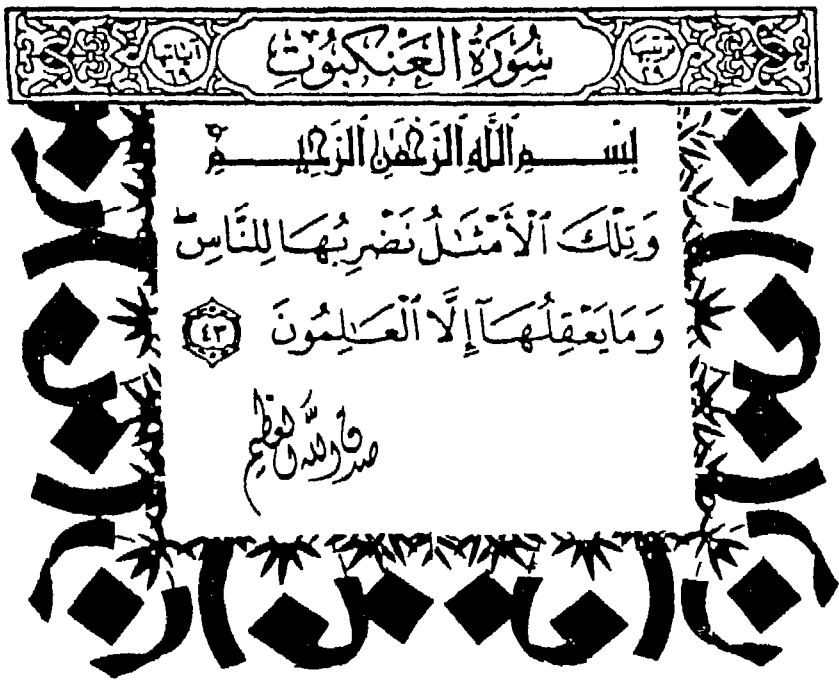 ترتيبها ٢٩ سُورَةُ الْعَنْكَبُوتِ آياتها ٦٩
بِسْمِ اللَّهِ الرَّحْمَٰنِ الرَّحِيمِ
وَتِلْكَ ٱلْأَمْثَٰلُ نَضْرِبُهَا لِلنَّاسِ ۖ
وَمَا يَعْقِلُهَآ إِلَّا ٱلْعَٰلِمُونَ ٤٣
صدق الله العظيم